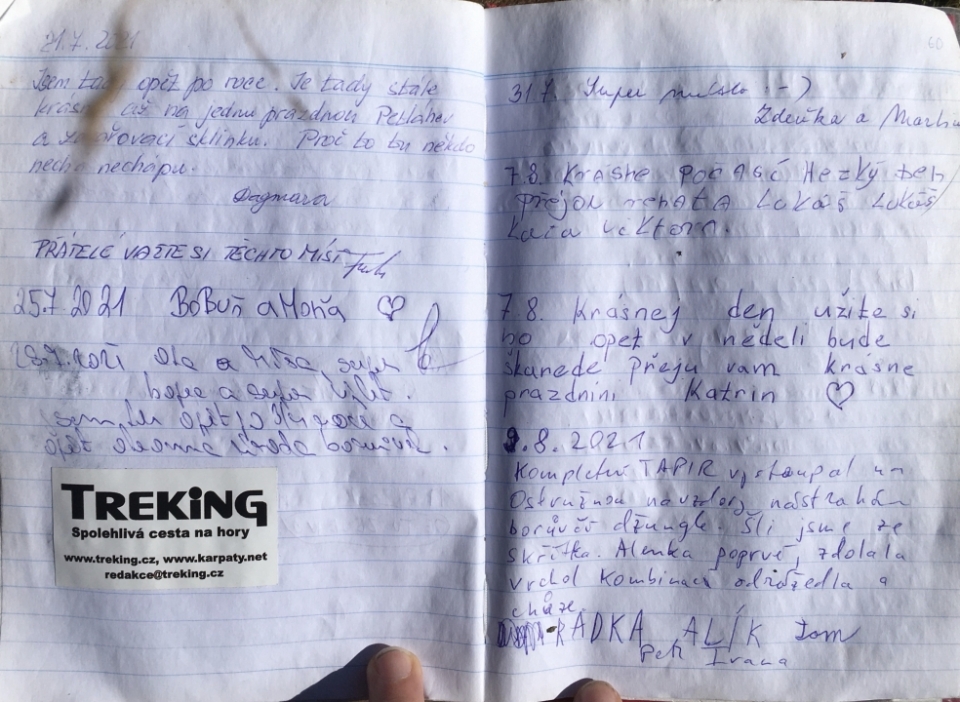 21.7. 2021
Jsem tady opět po roce. Je tady stále
krásně až na jednu prázdnou Petláhev
a zavařovací sklínku. Proč to tu někdo
nechá nechápu.
Dagmara
PŘÁTELÉ VAŽTE SI TĚCHTO MÍST
25.7 2021 BoBuň a Moňa ♡
Ola a super
a super výlet.
opět po roce a
opět borůvek.
TREKiNG
Spolehlivá cesta na hory
www.treking.cz, www.karpaty.net
redakce@treking.cz
60
31.7. Super :-)
Zdeňka a
7.8. Krásne počasí Hezký den
přejou renata Lukáš Lukáš
kača viktorn.
7.8. Krásnej den užite si
ho opet v nedeli bude
škarede přeju vam krásne
prazdnini Katrin ♡
9.8.2021
Kompletní TAPIR vystoupal na
Ostružnou navzdory nástrahám
borůvčí džungle. Šli jsme ze
Skřítka. Alenka poprvé zdolala
vrchol kombinací odrážedla a
chůze.
RADKA ALÍK Tom
Petr Ivana